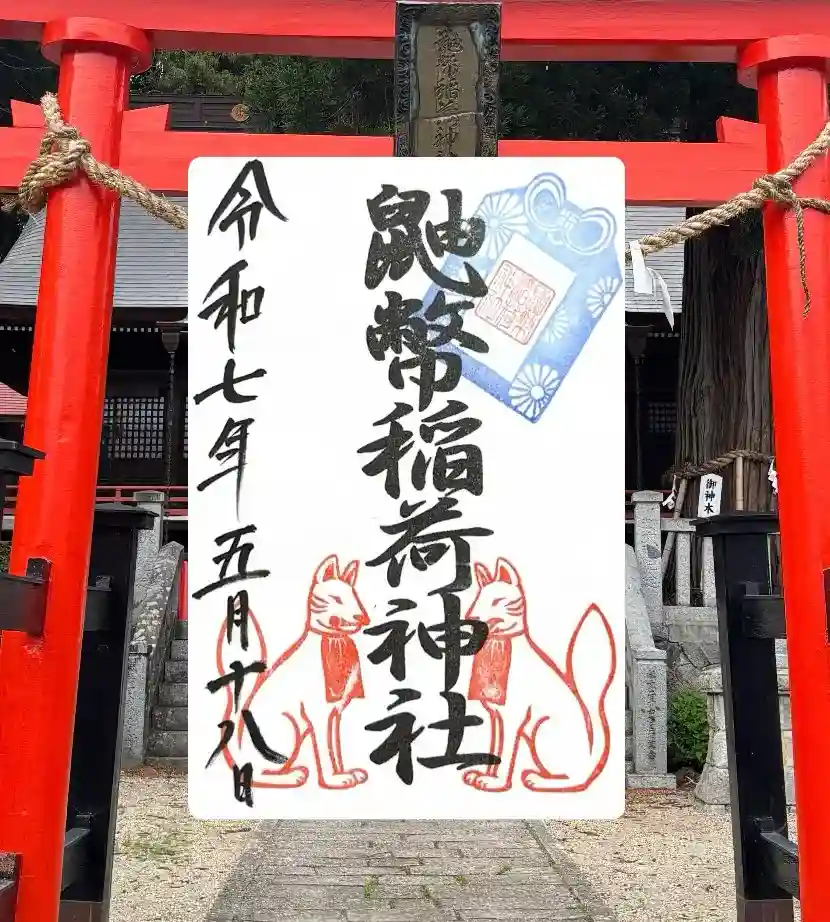 鼬幣稲荷神社
令和七年五月十八日
御神木